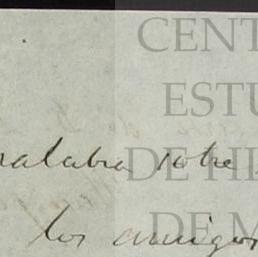 CENT
ESTU
DE HI
DE M
palabra sobre
los amigos